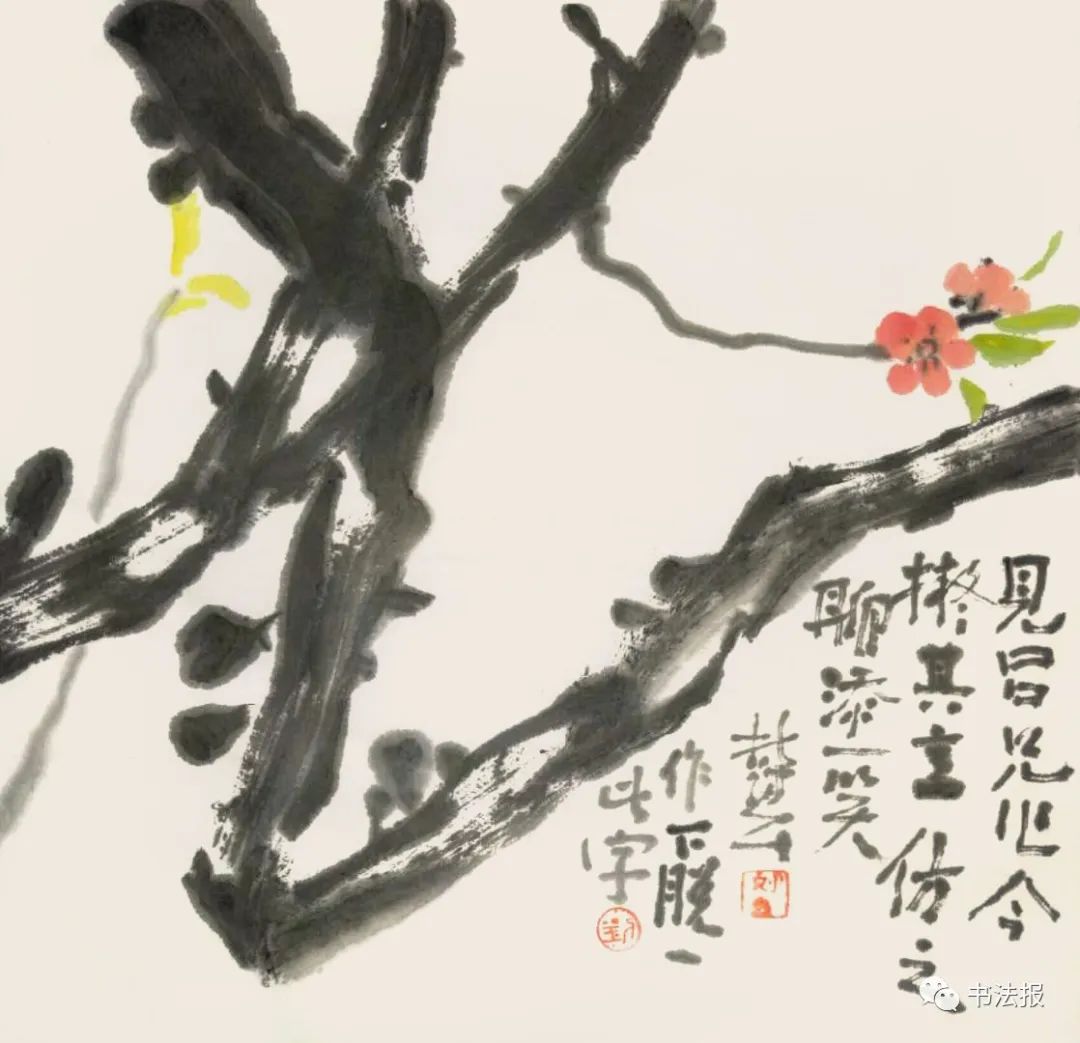 見吕兄作今
其意仿之
聊添一笑
作下脱一
此字
劉
书法报